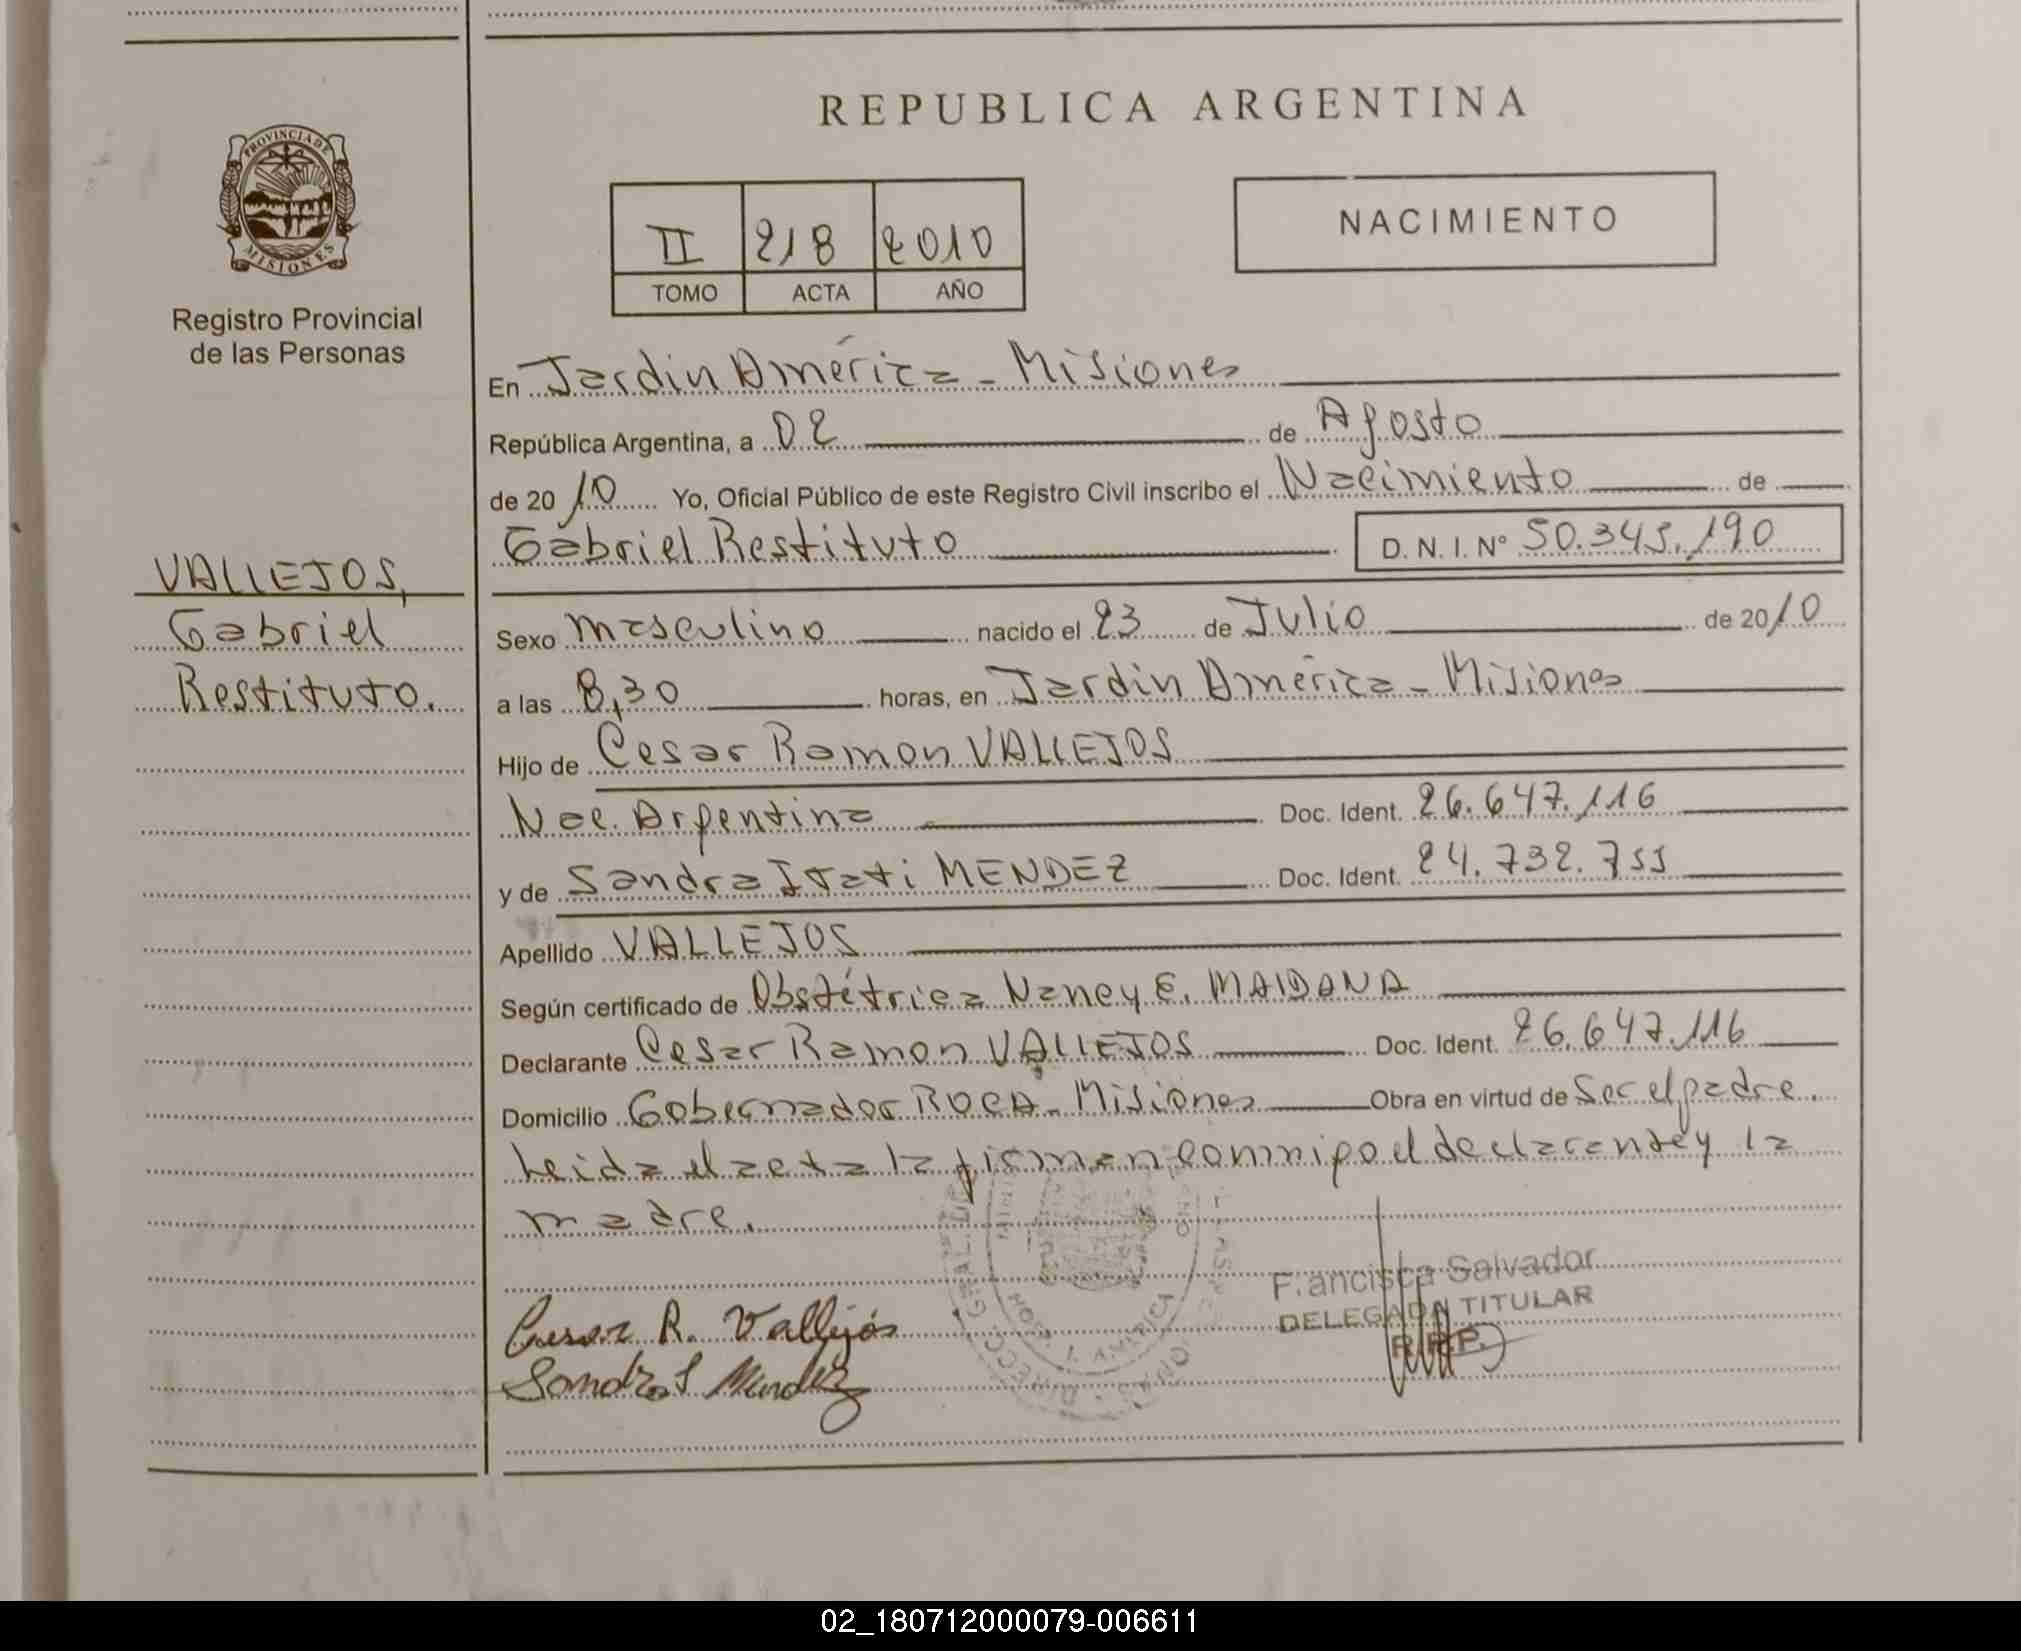 REPUBLICA ARGENTINA
PROVINCIA DE
MISIONES
Registro Provincial
de las Personas
NACIMIENTO
II 218 2010
TOMO ACTA AÑO
En Jardin América - Misiones
República Argentina, a 02 de Agosto
de 2010 Yo, Oficial Público de este Registro Civil inscribo el Nacimiento de
Gabriel Restituto D.N.I. Nº 50.345.190
VALLEJOS,
Gabriel
Restituto.
Sexo masculino nacido el 23 de Julio de 2010
a las 8,30 horas, en Jardin América - Misiones
Hijo de Cesar Ramon VALLEJOS
Nac. Argentina Doc. Ident. 26.647.116
y de Sandra Itati MENDEZ Doc. Ident. 24.732.755
Apellido VALLEJOS
Según certificado de Obstétrica Nancy E. MAIDANA
Declarante Cesar Ramon VALLEJOS Doc. Ident. 26.647.116
Domicilio Gobernador ROCA - Misiones Obra en virtud de Ser el padre.
Leida el acta la firman conmigo el declarante y la
madre.
Francisca Salvador
DELEGADA TITULAR
R.P.P.
Cesar R. Vallejos
Sandra I Mendez
02_180712000079-006611